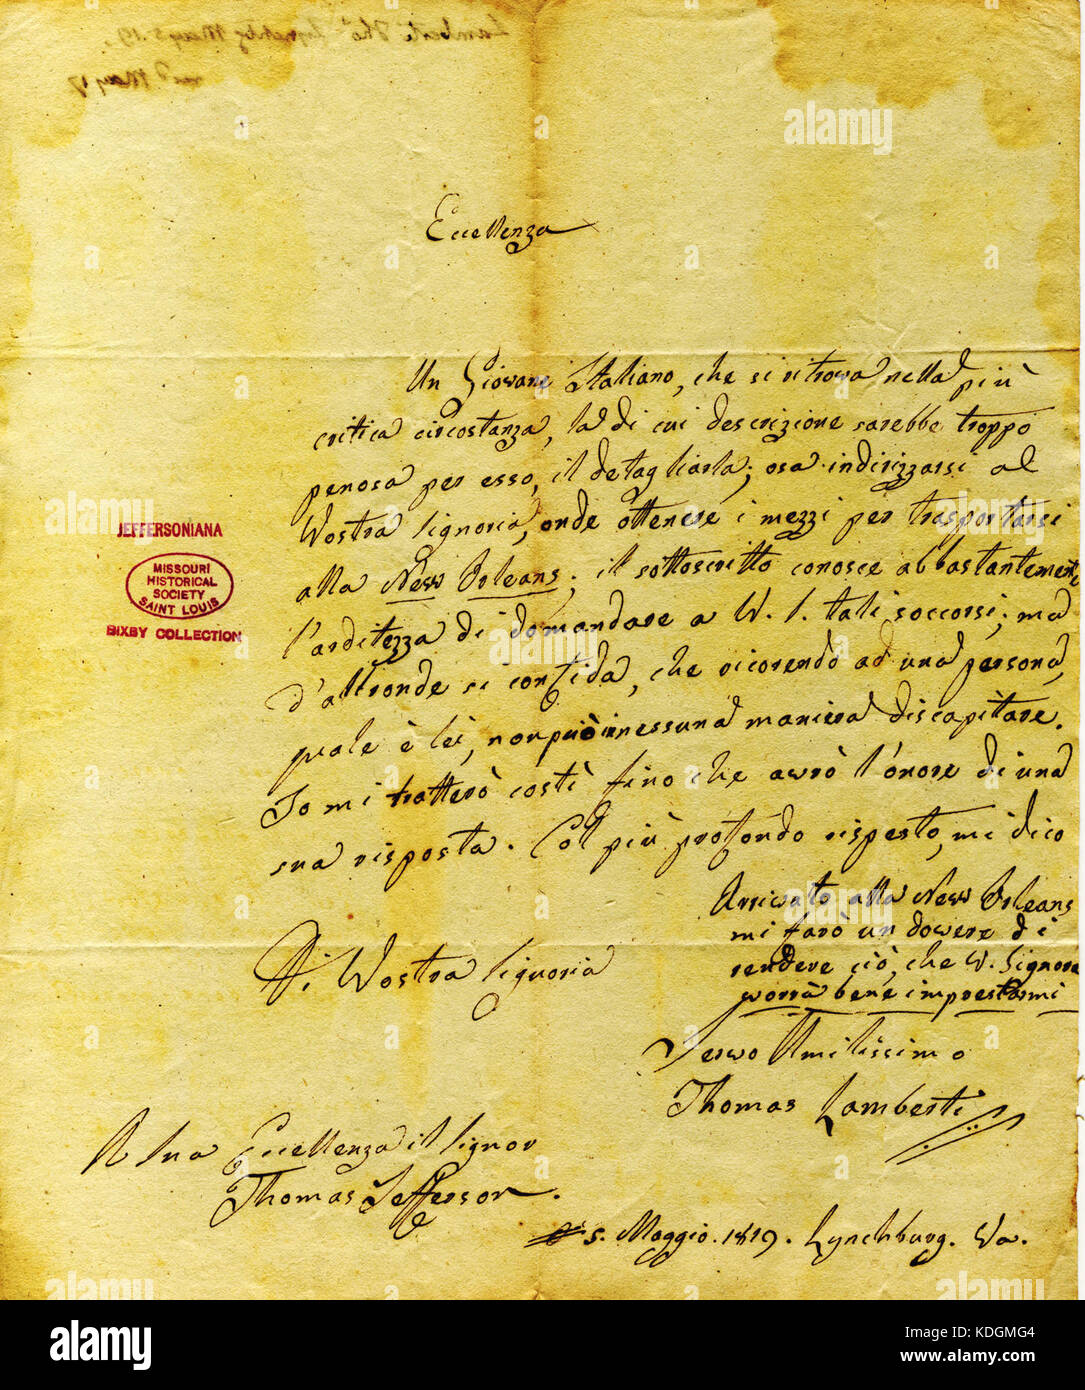 Lamberti Tho^s Lynchbg May 5. 19.
rec^d May 17
Eccellenza
Un Giovane Italiano, che si ritrova nella più
critica circostanza, la di cui descrizione sarebbe troppo
penosa per esso, il detagliarla; osa indirizzarsi al
Wostra Signoria, onde ottenere i mezzi per trasportarsi
alla New Orleans; il sottoscritto conosce abbastantemente
l'arditezza di domandare a W. S. tali soccorsi; ma
d'altronde si confida, che ricorendo ad una persona,
quale è lei, non può in nessuna maniera discapitare.
Io mi tratterò costì fino che awrò l'onore di una
sua risposta. Col più profondo rispesto, mi dico
Arrivato alla New Orleans
mi farò un dowere di
rendere ciò, che W. Signora
worrà bene imprestarmi
Di Wostra Signoria
Serwo Umilissimo
Thomas Lamberti
A Sua Eccellenza il Signor
Thomas Jefferson.
5. Maggio. 1819. Lynchburg. Wa.
JEFFERSONIANA
MISSOURI
HISTORICAL
SOCIETY
SAINT LOUIS
BIXBY COLLECTION
alamy
alamy
alamy
alamy
alamy
alamy
alamy
a
a
a
a
a
a
alamy
Image ID: KDGMG4
www.alamy.com